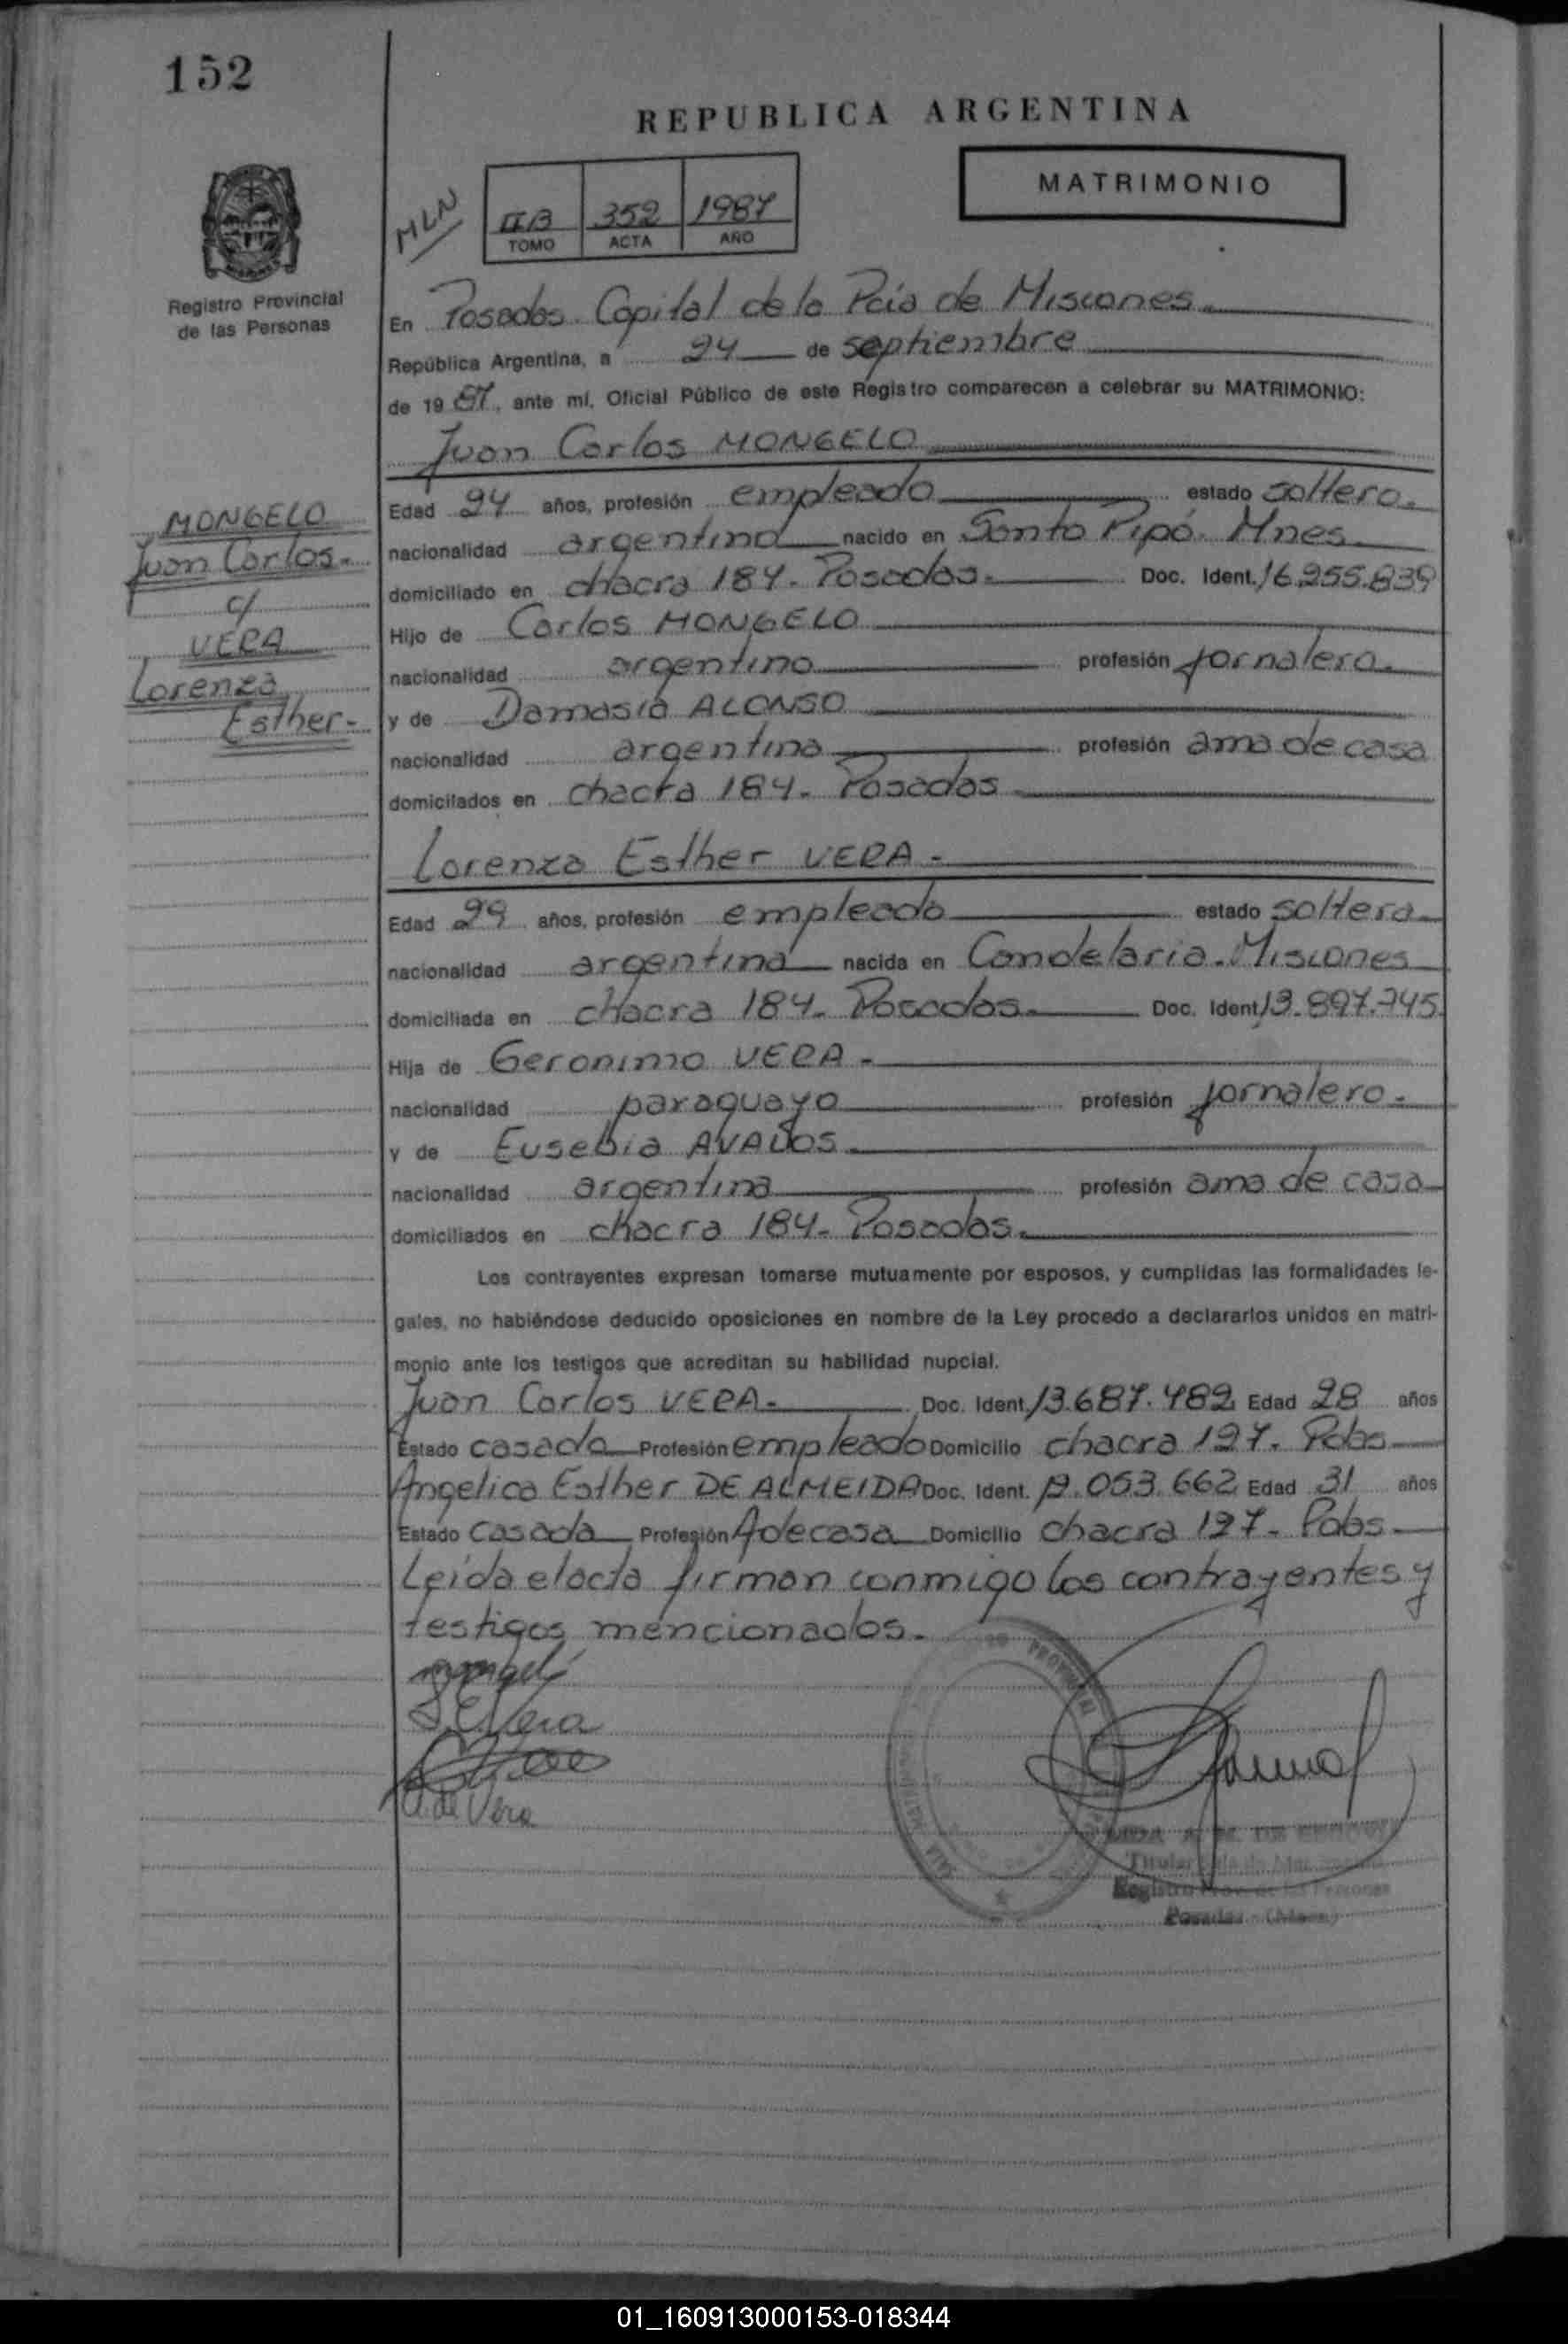 152
REPUBLICA ARGENTINA
MATRIMONIO
MLN
II B 352 1987
TOMO ACTA AÑO
Registro Provincial
de las Personas
En Posadas. Capital de la Pcia de Misiones
República Argentina, a 24 de septiembre
de 19 87, ante mí, Oficial Público de este Registro comparecen a celebrar su MATRIMONIO:
Juan Carlos MONGELO
MONGELO
Juan Carlos.
c/
VERA
Lorenza
Esther-
Edad 24 años, profesión empleado estado soltero.
nacionalidad argentina nacido en Santo Pipó. Mnes.
domiciliado en chacra 184. Posadas. Doc. Ident. 16.255.839
Hijo de Carlos MONGELO
nacionalidad argentino profesión jornalero.
y de Damasia ALONSO
nacionalidad argentina profesión ama de casa
domicilados en chacra 184. Posadas
Lorenza Esther VERA -
Edad 29 años, profesión empleada estado soltera
nacionalidad argentina nacida en Candelaria. Misiones
domiciliada en chacra 184. Posadas. Doc. Ident. 13.897.745.
Hija de Geronimo VERA -
nacionalidad paraguayo profesión jornalero.
y de Eusebia AVALOS.
nacionalidad argentina profesión ama de casa
domiciliados en chacra 184. Posadas.
Los contrayentes expresan tomarse mutuamente por esposos, y cumplidas las formalidades le-
gales, no habiéndose deducido oposiciones en nombre de la Ley procedo a declararlos unidos en matri-
monio ante los testigos que acreditan su habilidad nupcial.
Juan Carlos VERA. Doc. Ident. 13.687.482 Edad 28 años
Estado casado Profesión empleado Domicilio chacra 127. Pdas
Angelica Esther DE ALMEIDA Doc. Ident. 12.053.662 Edad 31 años
Estado casada Profesión A de casa Domicilio chacra 127. Pdas.
Leida el acta firman conmigo los contrayentes y
testigos mencionados.
L. E. Vera
A. de Vera
Titular Sala de
Registro Prov. de las Personas
Posadas - (Mnes.)
01_160913000153-018344